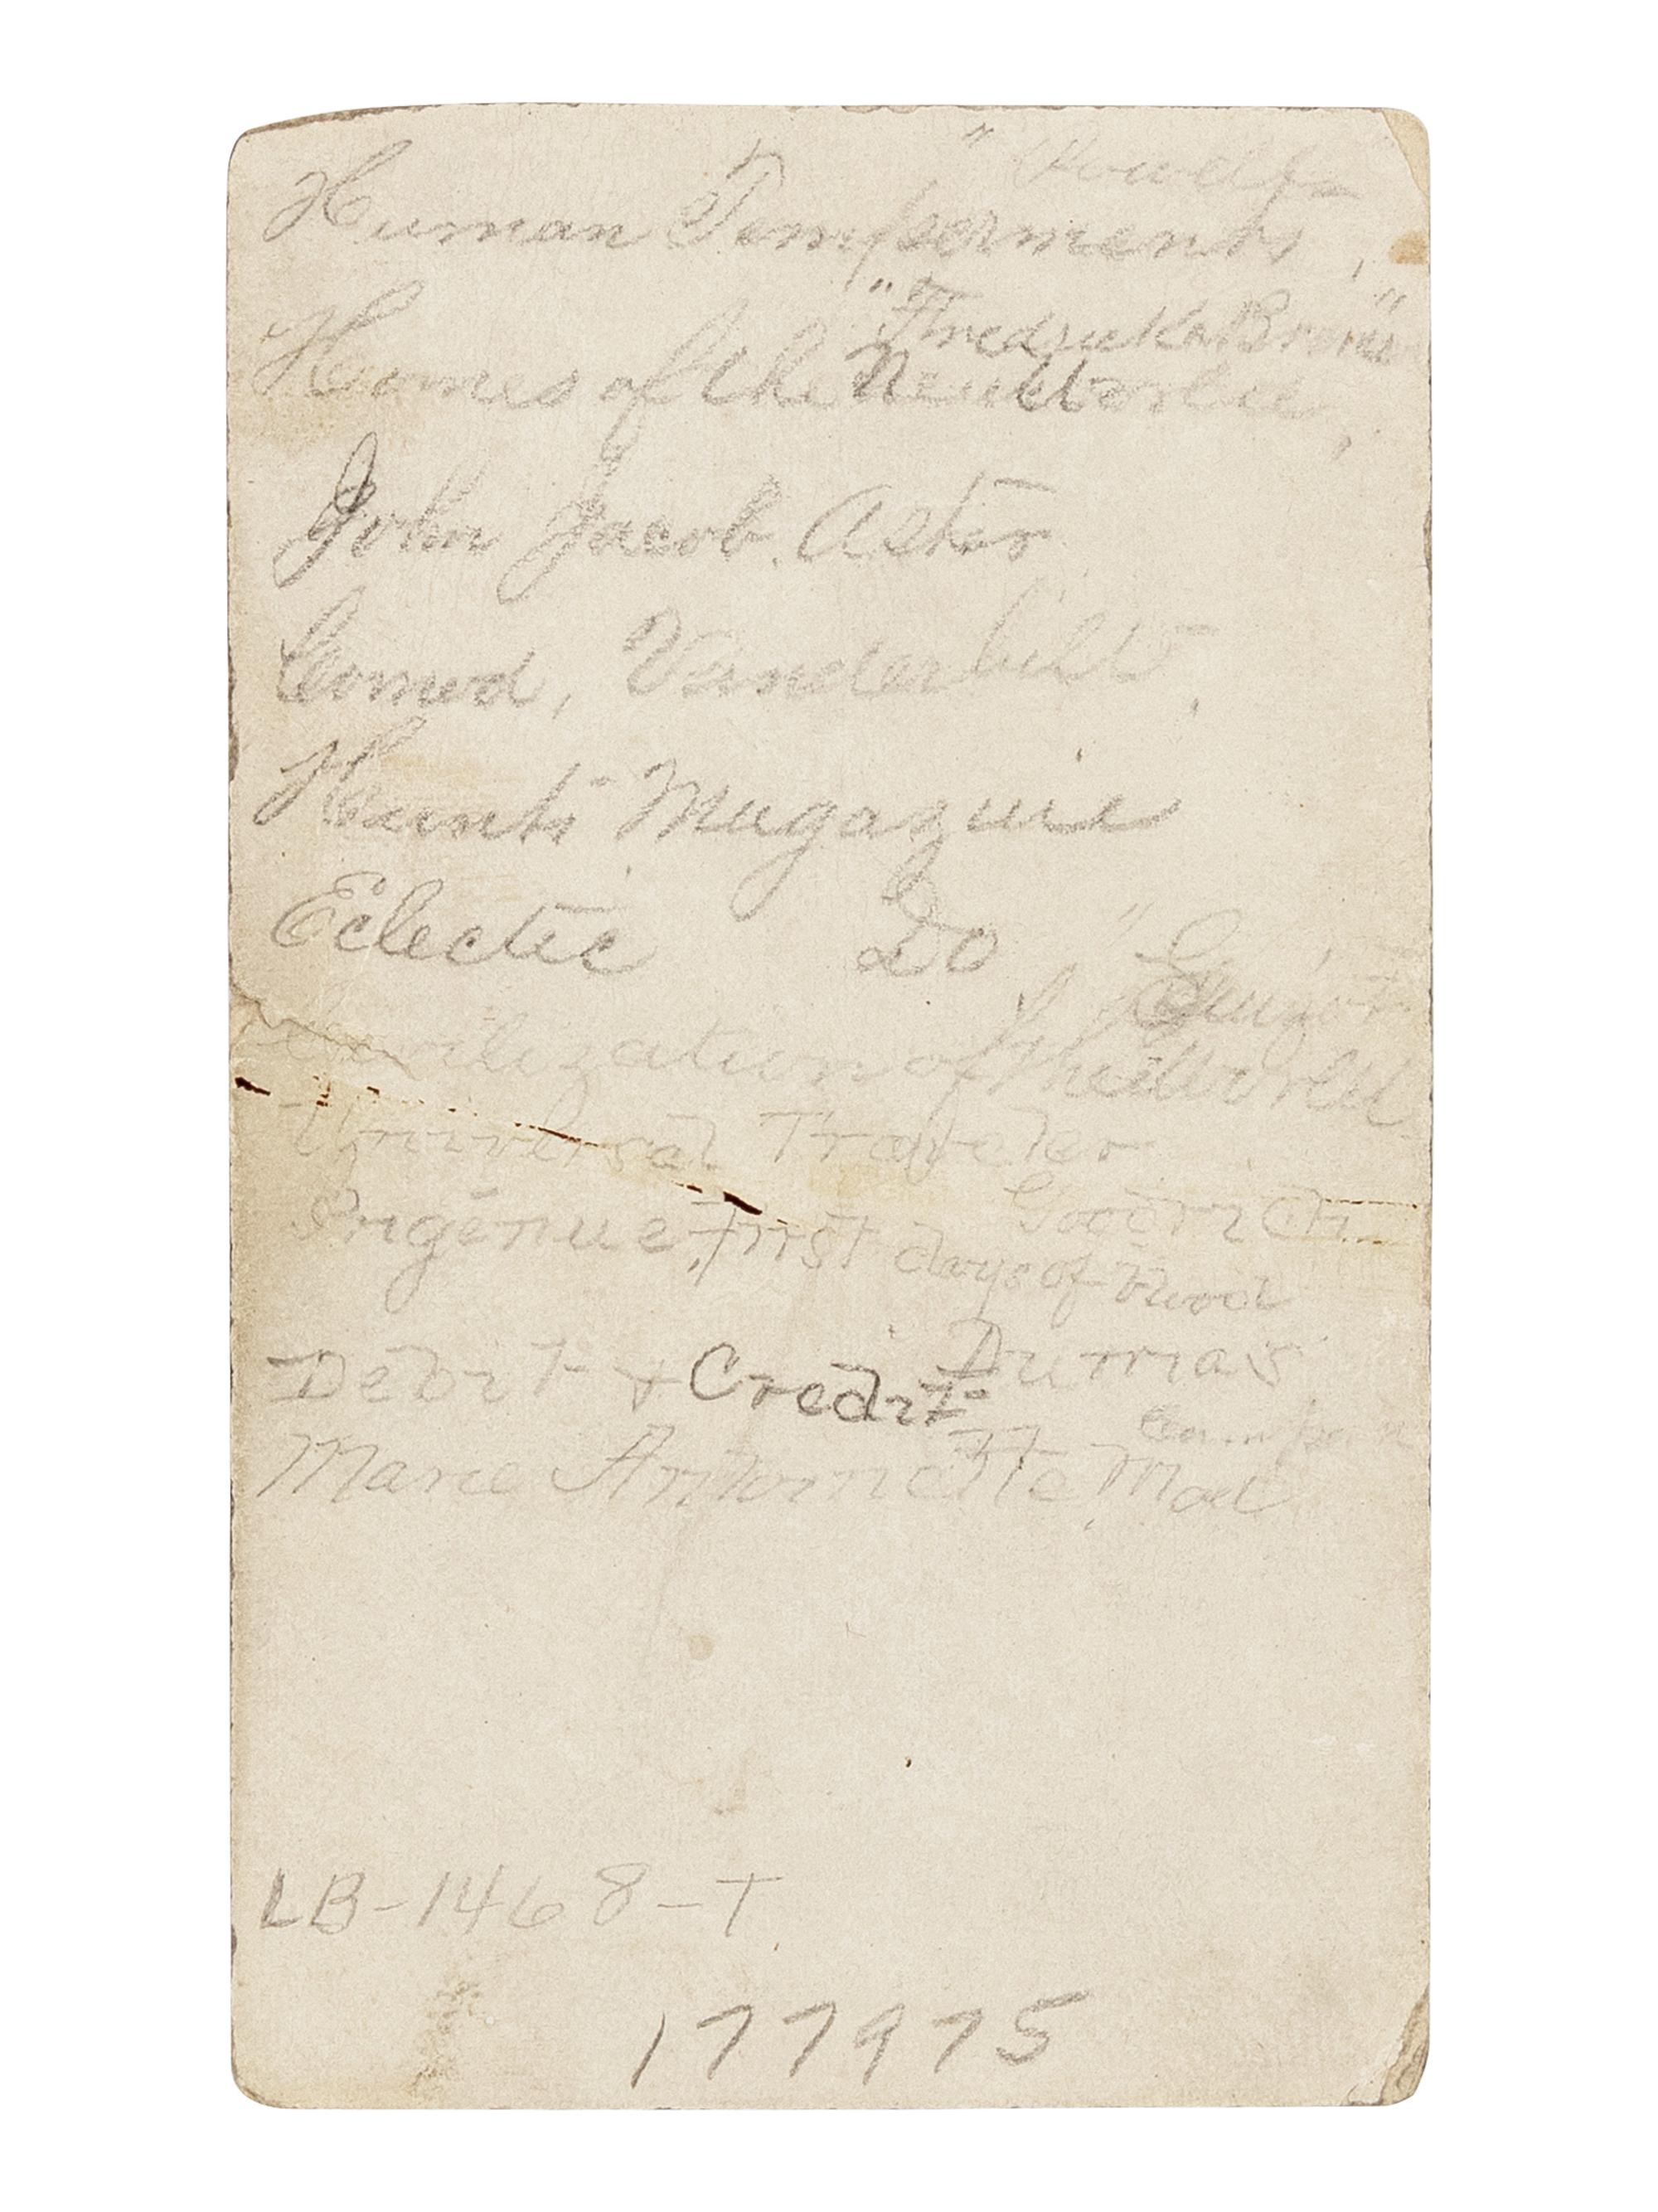 Human Temperments,
"Fredricka
Homes of the New World,
John Jacob Astor
Comod, Vanderbilt,
Hunts Magazine
Eclectic Do
"Guizot
Civilization of the World
Universal Traveler
Goodrich
Ingenue, First days of blood
Dumas
Debit & Credit
Campan
Marie Antoinette, Mad
LB-1468-T
177975